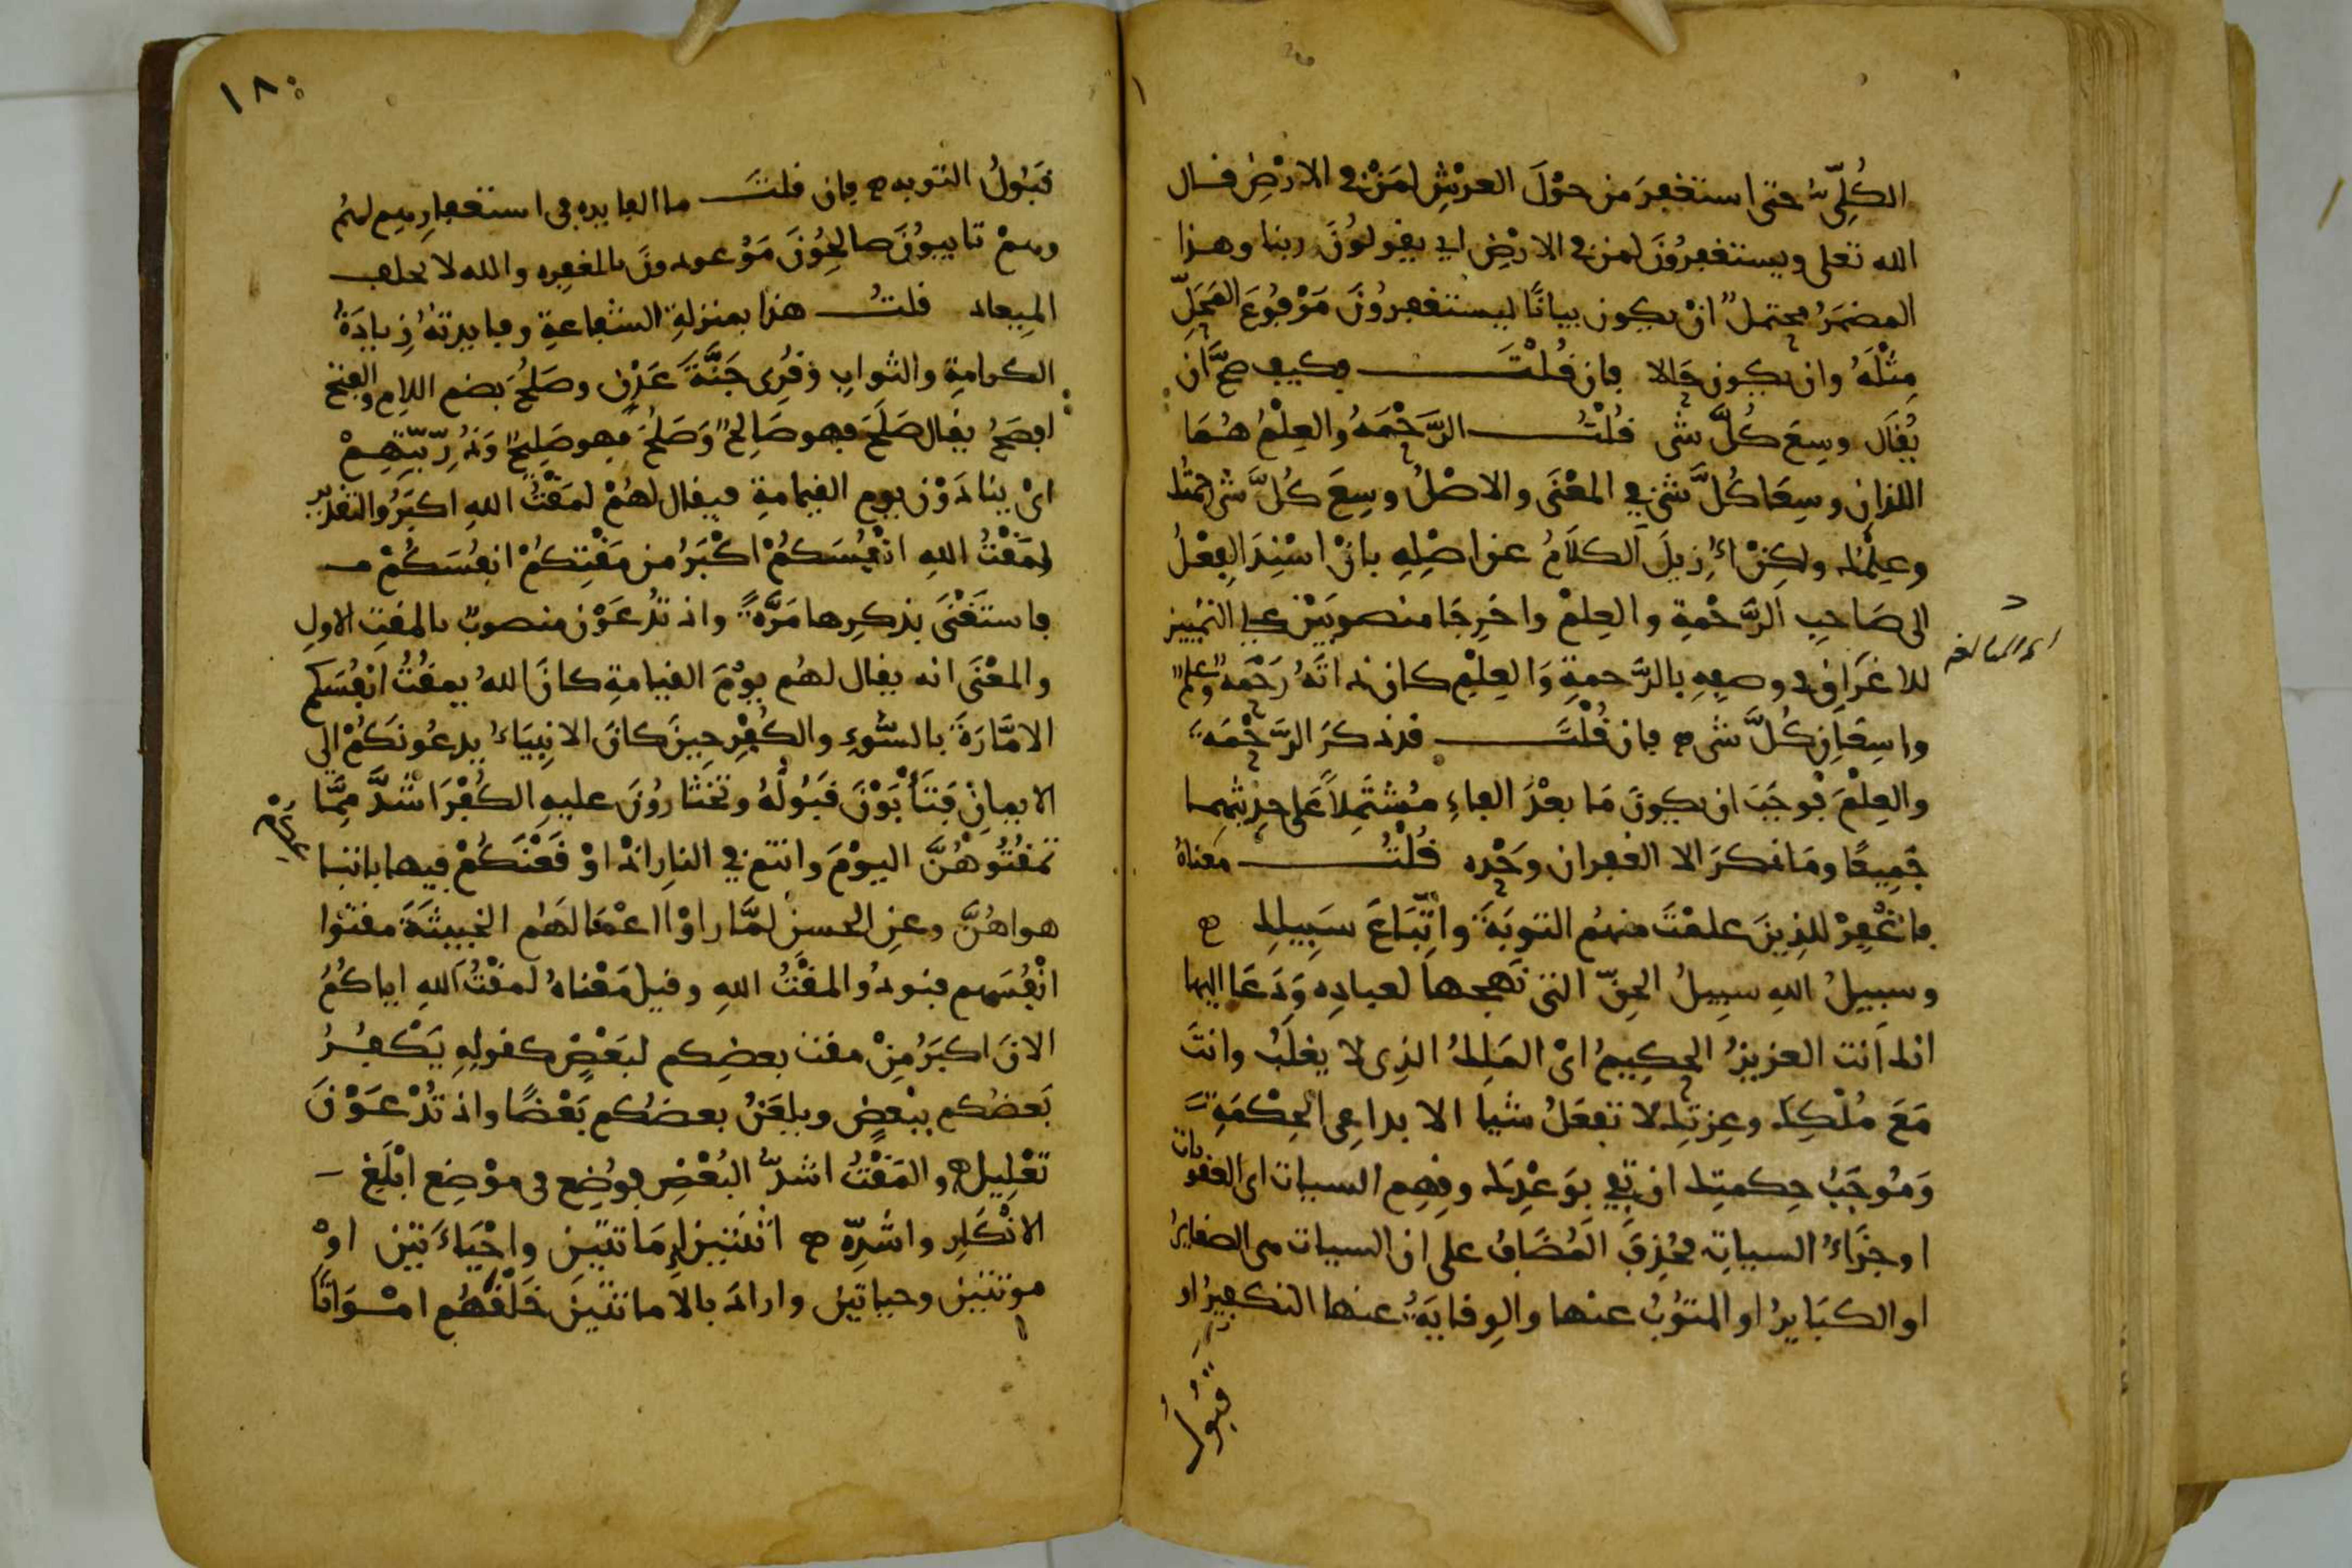 الكُلِّىُّ حتى استغفرَ من حوْلَ العرْشِ لمَنْ فى الارْضِ فـال
الله تعلى ويستغفرُونَ لمن فى الارْضِ اى يقولوُنَ ربنا وهذا
المضمَرُ محتمل انْ يكون بيانًا ليستغفرونَ مَرْفوُعَ المَحَلِّ
مِثْلَهُ وان يكون حَالا فان قُلْتَ وكيف صحَّ اَن
يُقَال وسِعَ كُلَّ شى قُلْتُ الرَّحْمَهُ والعِلْمُ هُمَا
اللذان وسِعَا كُلَّ شىْ فى المعْنَى والاصْلُ وسِعَ كُلَّ شى رحمتُك
وعِلْمُك ولكِنْ اُزِيلَ الكلَامُ عن اصْلِهِ بانْ اسْنِدَ الِفعْلُ
الى صَاحِبِ الرَّحْمةِ والعِلمْ واخرِجَا منصوبَيْن على التمْييز
للاغرَاقِ فى وصفِهِ بالرَّحمةِ وَالعِلْمِ كان ذاتَهُ رَحْمَه وعلم
واسِعَانِ كُلَّ شى فان قُلْتَ قد ذكرَ الرَّحْمَه
والعِلْمَ فوجَبَ ان يكونَ مَا بعْدَ الفاءِ مُشتَمِلاً على حدِيثهِمـا
جَمِيعًا ومَا ذكرَ الا الغفران وَحْده قُلْتُ مَعْناهُ
فاغْفِرْ للذِينَ علمْتَ منهُم التوبَةَ واتِّبَاعَ سَبِيلِك
وسبيلُ اللهِ سبيلُ الحقِّ التى نَهجها لعبادِه وَدَعَا اليها
انك اَنت العزيزُ الحكِيمُ اىْ المَلِكُ الذِى لا يغلَبُ وانتَ
مَعَ مُلْكِكَ وعِزتِك لا تفعَلُ شيا الا بداعِى الحِكْمَةِ
وَمُوجَبُ حِكمتِك ان تفى بوَعْدِكَ وقِهِم السيات اى العقوبات
او جزَاءُ السياتِ فحُذِفَ المُضَافُ على ان السيات هى الصغايرُ
او الكبَايرُ او المتوُبُ عنها والوِقايَةُ عنها التكفيرُ او
قبُولُ
١٨٠
قَبُولُ التوبه فان قلتَ ما الفايده فى استغفارِهم لهُم
وهمْ تايبوُنَ صالحِوُنَ مَوْعودونَ بالمغفِره والله لا يخلف
المِيعاد قلتُ هذا بمنزلةِ الشفاعةِ وفايدتهُ زيادَةُ
الكرامةِ والثوابِ وَقُرِى جَنَّةَ عَدْنٍ وصَلُحَ بضم اللامِ والفتح
افصَحُ يقال صَلَحَ فهو صَالحٌ وَصَلُحَ فهو صَليحٌ وَذُرِّيّتِهِمْ
اىْ ينادَوْن يوم القيامةِ فيقال لهُمْ لمَقْتُ اللهِ اكبَرُ والتقدير
لمَقْتُ اللهِ انْفُسَكمُ اكْبَرُ من مَقْتِكُمْ انفُسَكُمْ
فاستَغْنَى بذكرِها مَرَّةً واذ تُدعَوْن منصوبٌ بالمقتِ الاولِ
والمعْنَى انه يقال لهُم يوْمَ القيامةِ كانَ اللهُ يمقُتُ انفُسَكم
الامَّارَةَ بالسُّوءِ والكُفْرِ حِينَ كانَ الانبِيَاءُ يدعُونَكُمْ الى
الايمانِ فتَأْبَوْنَ قبُولَهُ وتخْتارُونَ عليهِ الكُفْرَ اشدَّ مِمَّا
تمقُتُوهُنَّ اليوْمَ وانتم فى النارِ اذْ اوْقَعْنَكُمْ فيها باتباعكم
هواهُنَّ وعنِ الحسنِ لمَّا راوْا اعْمَالَهم الخبيثَةَ مقتوا
انْفُسَهم فنودُوا لمقْتُ اللهِ وقيل مَعْناهُ لمقْتُ اللهِ اياكُمُ
الانَ اكبَرُ مِنْ مقت بعضِكم لبَعْضٍ كقولِهِ يَكْفُرُ
بَعضُكم ببْعضٍ ويلعَنُ بعضُكم بَعْضًا واذ تُدْعَوْنَ
تعْلِيل والمَقْتُ اشدُّ البُغْضِ فوُضِع فى موْضِع ابْلَغِ
الانْكَارِ واشَدِّه اثنَتَيْنِ اِمَاتتَيْنِ واحْيَاءَتيْن اوْ
موتتيْن وحياتَيْن وارادَ بالاماتتَيْنِ خَلْقَهُم امْوَاتًا